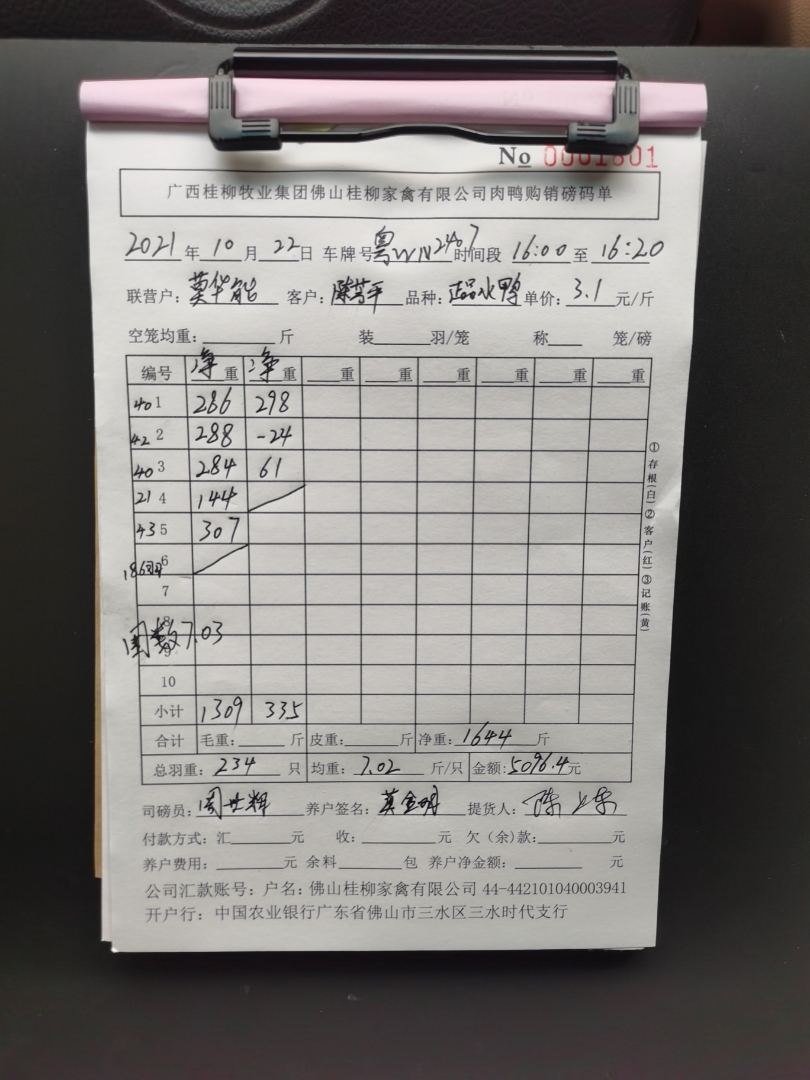 No 0001801
广西桂柳牧业集团佛山桂柳家禽有限公司肉鸭购销磅码单
2021年10月22日 车牌号粤WN2407时间段 16:00至16:20
联营户:莫华能 客户:陈芳平 品种:正品水鸭 单价:3.1元/斤
空笼均重:斤 装 羽/笼 称 笼/磅
编号 净重 净重 重 重 重 重 重 重
40 1 286 298
42 2 288 -24
40 3 284 61
21 4 144
43 5 307
186 6
7
8
周数7.03
9
10
小计 1309 335
合计 毛重: 斤 皮重: 斤 净重:1644斤
总羽重:234只 均重:7.02斤/只 金额:5096.4元
司磅员:周世辉 养户签名:莫金明 提货人:
付款方式:汇 元 收: 元 欠(余)款: 元
养户费用: 元 余料 包 养户净金额: 元
公司汇款账号:户名:佛山桂柳家禽有限公司 44-442101040003941
开户行:中国农业银行广东省佛山市三水区三水时代支行
①存根(白)②客户(红)③记账(黄)